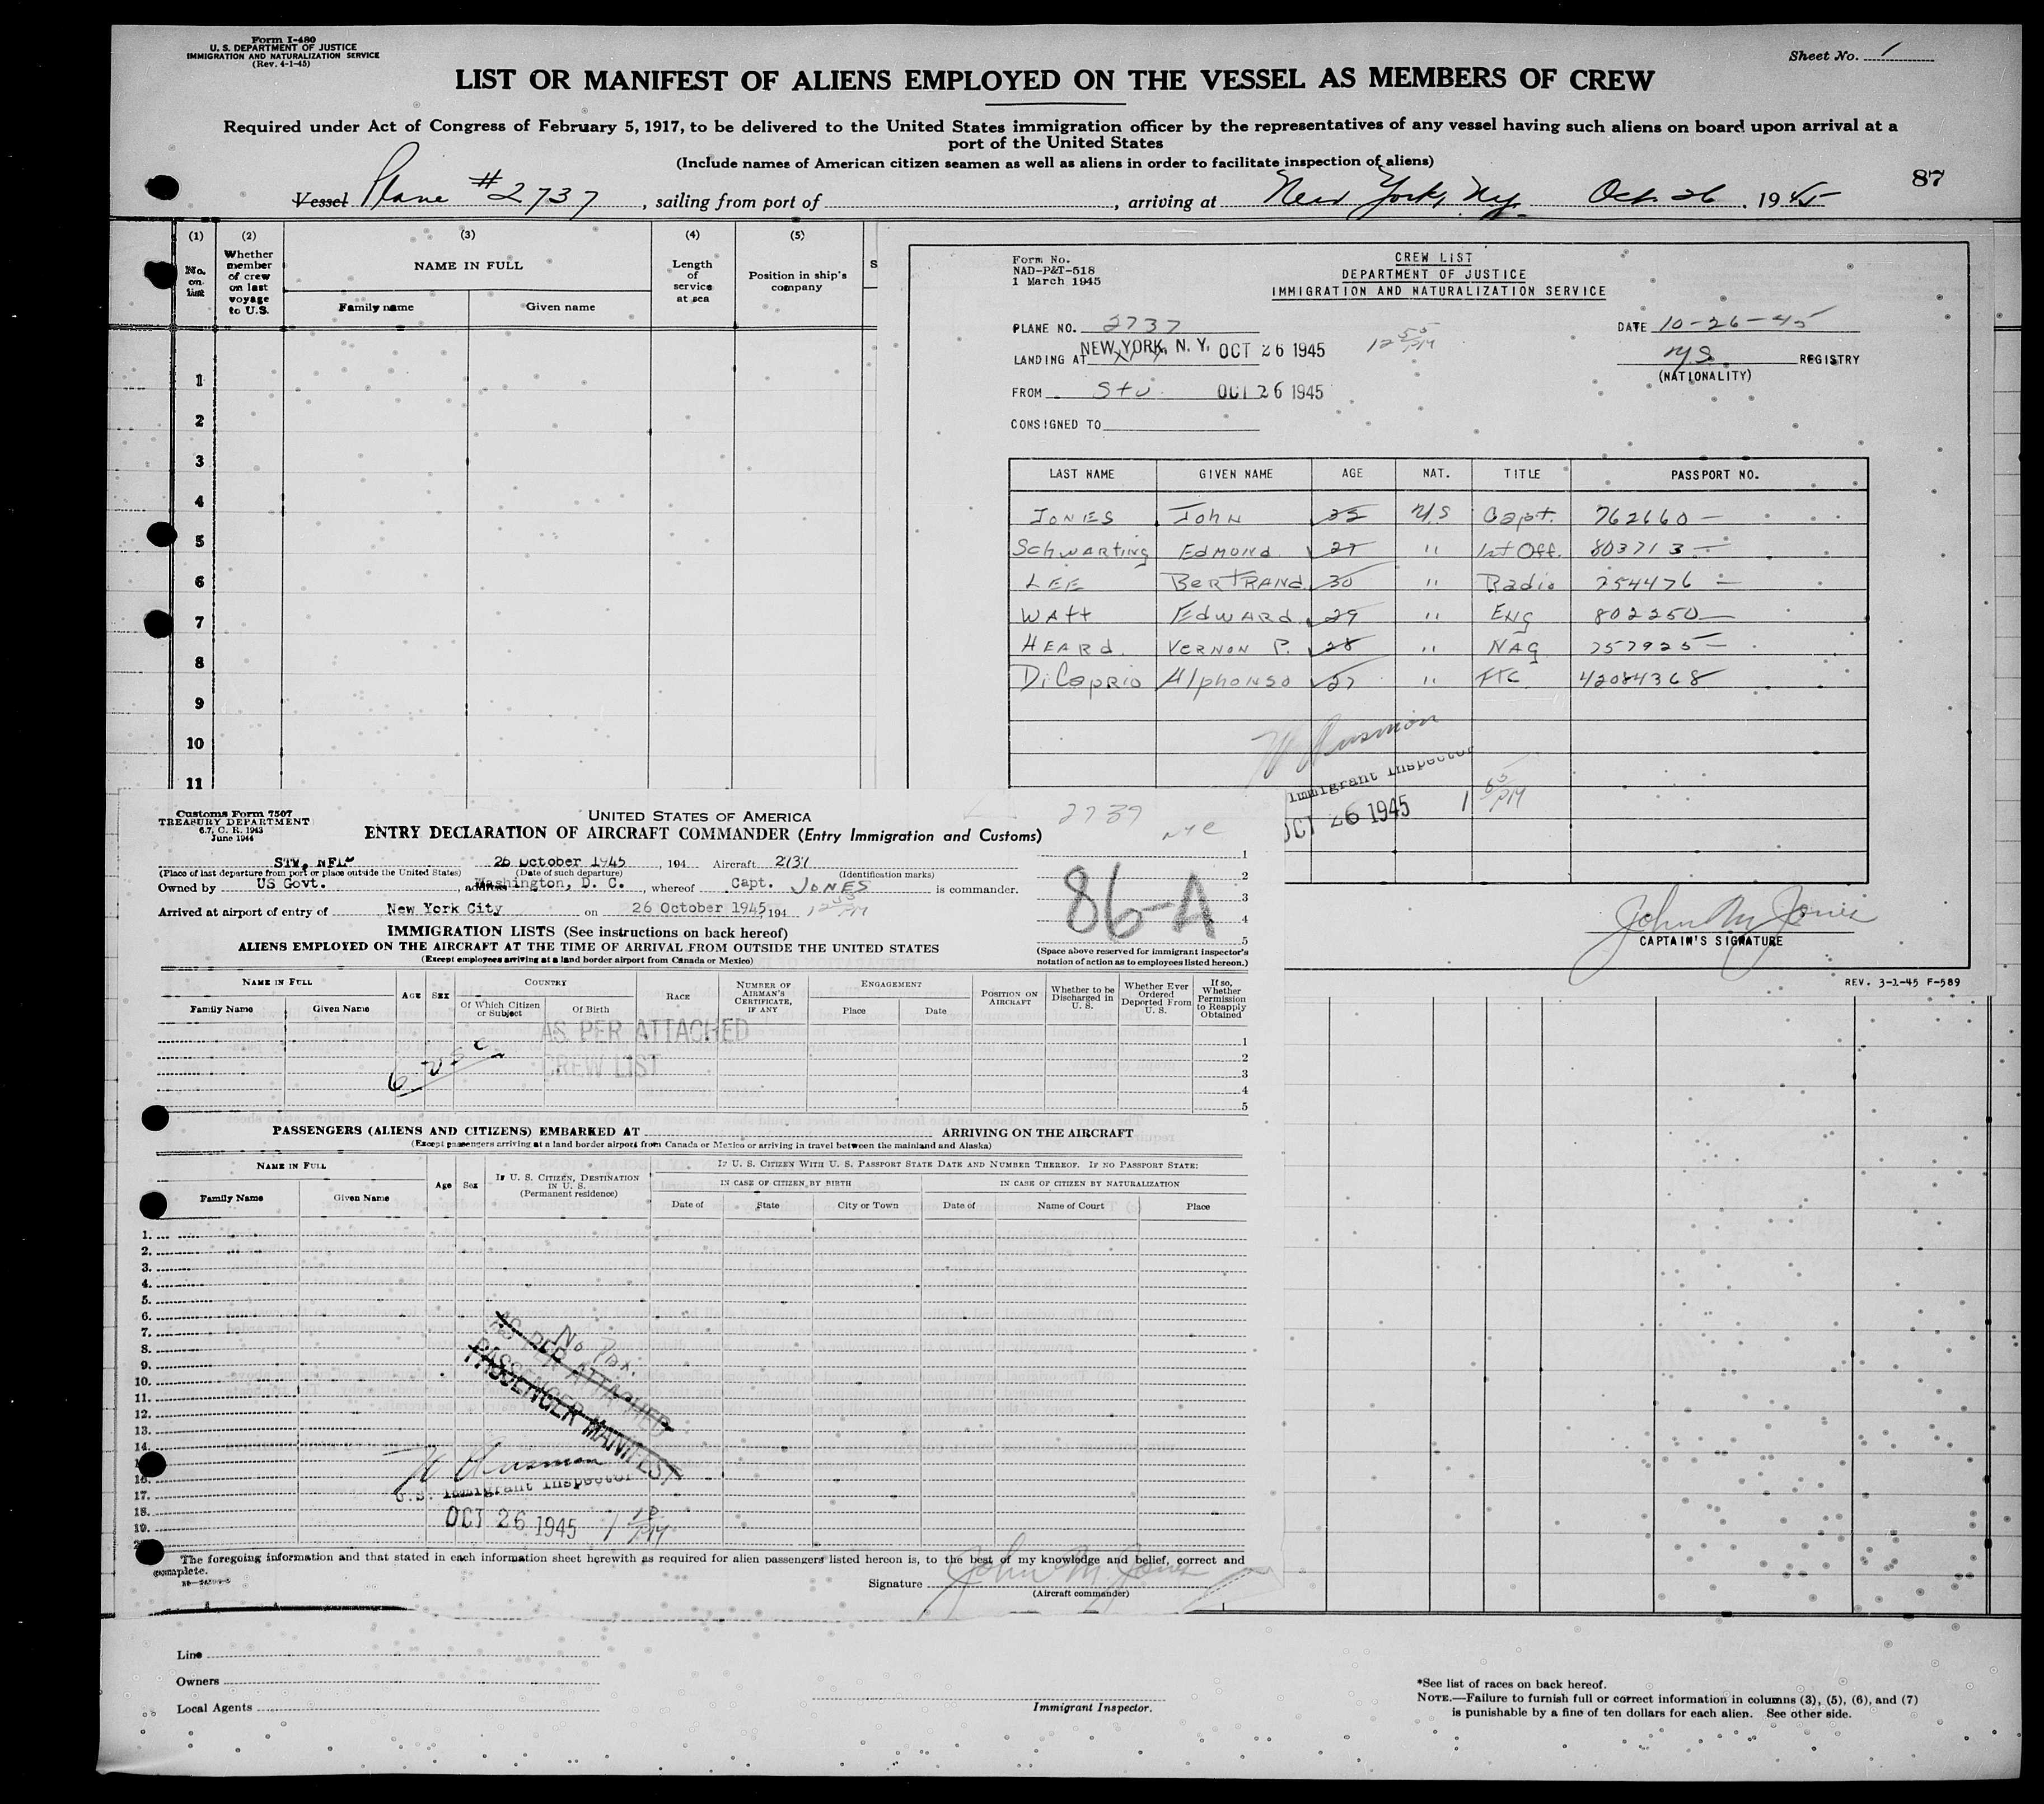 Form I-480
U. S. DEPARTMENT OF JUSTICE
IMMIGRATION AND NATURALIZATION SERVICE
(Rev. 4-1-45)
Sheet No. 1
LIST OR MANIFEST OF ALIENS EMPLOYED ON THE VESSEL AS MEMBERS OF CREW
Required under Act of Congress of February 5, 1917, to be delivered to the United States immigration officer by the representatives of any vessel having such aliens on board upon arrival at a
port of the United States
(Include names of American citizen seamen as well as aliens in order to facilitate inspection of aliens)
87
Vessel Plane #2737, sailing from port of , arriving at New York, Ny. Oct 26, 1945
(1) (2) (3) (4) (5)
No. on list
Whether member of crew on last voyage to U.S.
NAME IN FULL
Family name Given name
Length of service at sea
Position in ship's company
S
1
2
3
4
5
6
7
8
9
10
11
Form No.
NAD-P&T-518
1 March 1945
CREW LIST
DEPARTMENT OF JUSTICE
IMMIGRATION AND NATURALIZATION SERVICE
PLANE NO. 2737 DATE 10-26-45
LANDING AT NEW YORK, N. Y. OCT 26 1945 12 55 PM US REGISTRY
(NATIONALITY)
FROM Stv. OCT 26 1945
CONSIGNED TO
LAST NAME GIVEN NAME AGE NAT. TITLE PASSPORT NO.
JONES John 35 U.S Capt. 762660 —
Schwarting Edmond 27 " 1st Off. 803713 —
LEE BerTRANd 30 " Radio 254476 —
WAtt EdWARd 29 " ENg 802250 —
HEARd. VerNON P. 28 " NAg 257925 —
DiCaprio Alphonso 27 " FTC 42084368
Immigrant Inspector
OCT 26 1945 1 55 PM
John M Jones
CAPTAIN'S SIGNATURE
REV. 3-1-45 F-589
Customs Form 7507
TREASURY DEPARTMENT
6.7, C. R. 1943
June 1944
UNITED STATES OF AMERICA
ENTRY DECLARATION OF AIRCRAFT COMMANDER (Entry Immigration and Customs)
2737
NYC
STV, NFLD 26 October 1945, 194 Aircraft 2737
(Place of last departure from port or place outside the United States) (Date of such departure) (Identification marks)
Owned by US Govt., address Washington, D. C., whereof Capt. JONES is commander.
Arrived at airport of entry of New York City on 26 October 1945, 194 12 55 PM
1
2
3
4
5
86-A
IMMIGRATION LISTS (See instructions on back hereof)
ALIENS EMPLOYED ON THE AIRCRAFT AT THE TIME OF ARRIVAL FROM OUTSIDE THE UNITED STATES
(Except employees arriving at a land border airport from Canada or Mexico)
(Space above reserved for immigrant inspector's
notation of action as to employees listed hereon.)
NAME IN FULL
Family Name Given Name
AGE SEX
COUNTRY
Of Which Citizen or Subject Of Birth
RACE
NUMBER OF AIRMAN'S CERTIFICATE, IF ANY
ENGAGEMENT
Place Date
POSITION ON AIRCRAFT
Whether to be Discharged in U. S.
Whether Ever Ordered Deported From U. S.
If so, Whether Permission to Reapply Obtained
AS PER ATTACHED
CREW LIST
6 USC
1
2
3
4
5
PASSENGERS (ALIENS AND CITIZENS) EMBARKED AT ARRIVING ON THE AIRCRAFT
(Except passengers arriving at a land border airport from Canada or Mexico or arriving in travel between the mainland and Alaska)
NAME IN FULL
Family Name Given Name
Age Sex
IF U. S. CITIZEN, DESTINATION IN U. S.
(Permanent residence)
IF U. S. CITIZEN WITH U. S. PASSPORT STATE DATE AND NUMBER THEREOF. IF NO PASSPORT STATE:
IN CASE OF CITIZEN BY BIRTH IN CASE OF CITIZEN BY NATURALIZATION
Date of State City or Town Date of Name of Court Place
1.
2.
3.
4.
5.
6.
7.
8.
9.
10.
11.
12.
13.
14.
16.
17.
18.
19.
No Pax.
AS PER ATTACHED
PASSENGER MANIFEST
U.S. Immigrant Inspector
OCT 26 1945 1 PM
The foregoing information and that stated in each information sheet herewith as required for alien passengers listed hereon is, to the best of my knowledge and belief, correct and
complete.
Signature John M. Jones
(Aircraft commander)
Line
Owners
Local Agents
Immigrant Inspector.
*See list of races on back hereof.
NOTE.—Failure to furnish full or correct information in columns (3), (5), (6), and (7)
is punishable by a fine of ten dollars for each alien. See other side.